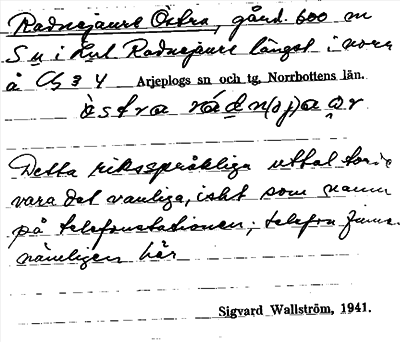 Radnejaure Östra, gård. 600 m
S u i Radnejaure längst i norr
å Ch 3 4 Arjeplogs sn och tg, Norrbottens län.
Detta riksspråkliga uttal torde
vara det vanliga, iskt som namn
på telefonstationen; telefon finns
nämligen här
Sigvard Wallström, 1941.